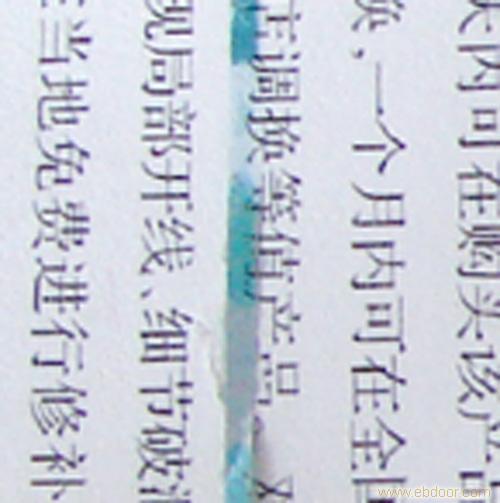 内可在购买该产
换，一个月内可在全
调换等值产品
现局部开线、细节破
当地免费进行修补
www.ebdoor.com